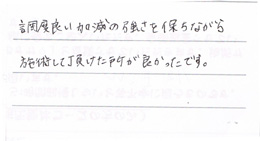 調度良い加減の強さを保ちながら
施術して頂けた所が良かったです。